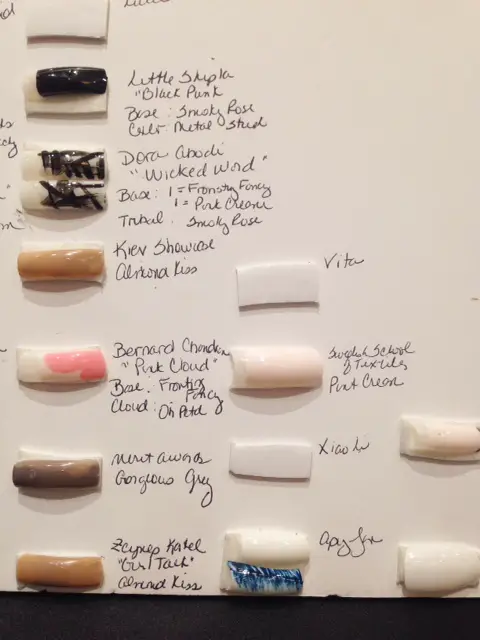 Little Shilpa
"Black Punk
Base: Smoky Rose
Color: Metal Stud
Dora Abodi
"Wicked Word"
Base: 1 = Frosting Fancy
1 = Pink Cream
Tribal: Smoky Rose
Kiev Showcase
Almond Kiss
Bernard Chandran
"Pink Cloud"
Base: Frosting
Fancy
Cloud: Oh Petal
Merit Awards
Gorgeous Grey
Zeynep Kartal
"Girl Talk"
Almond Kiss
Vita
Swedish School
of Textiles
Pink Cream
Xiao Li